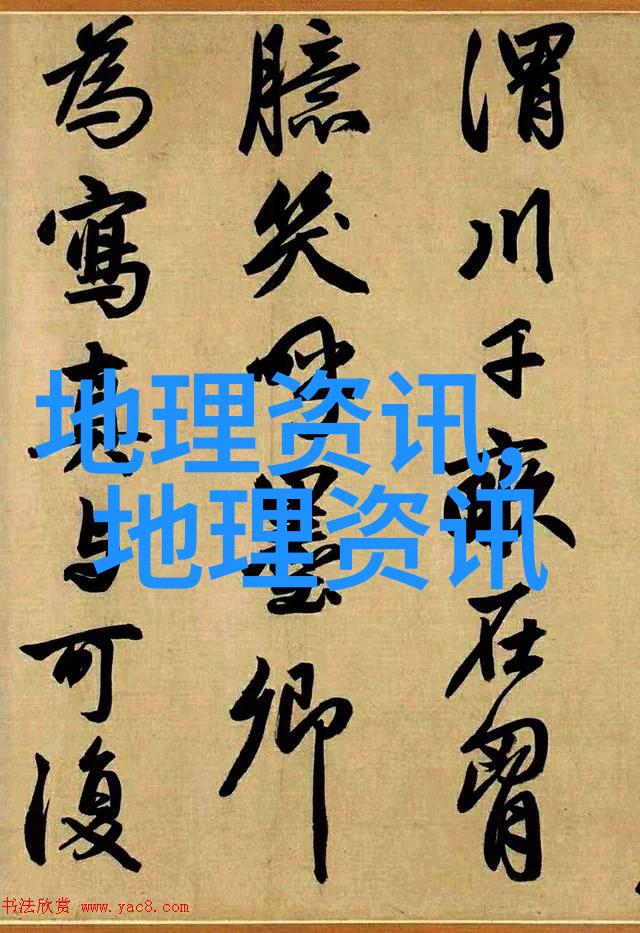 渭川千畝在胷
臆笑呼墨卿
為寫真与可復
地理资讯,
地理资讯
书法欣赏 www.yac8.com